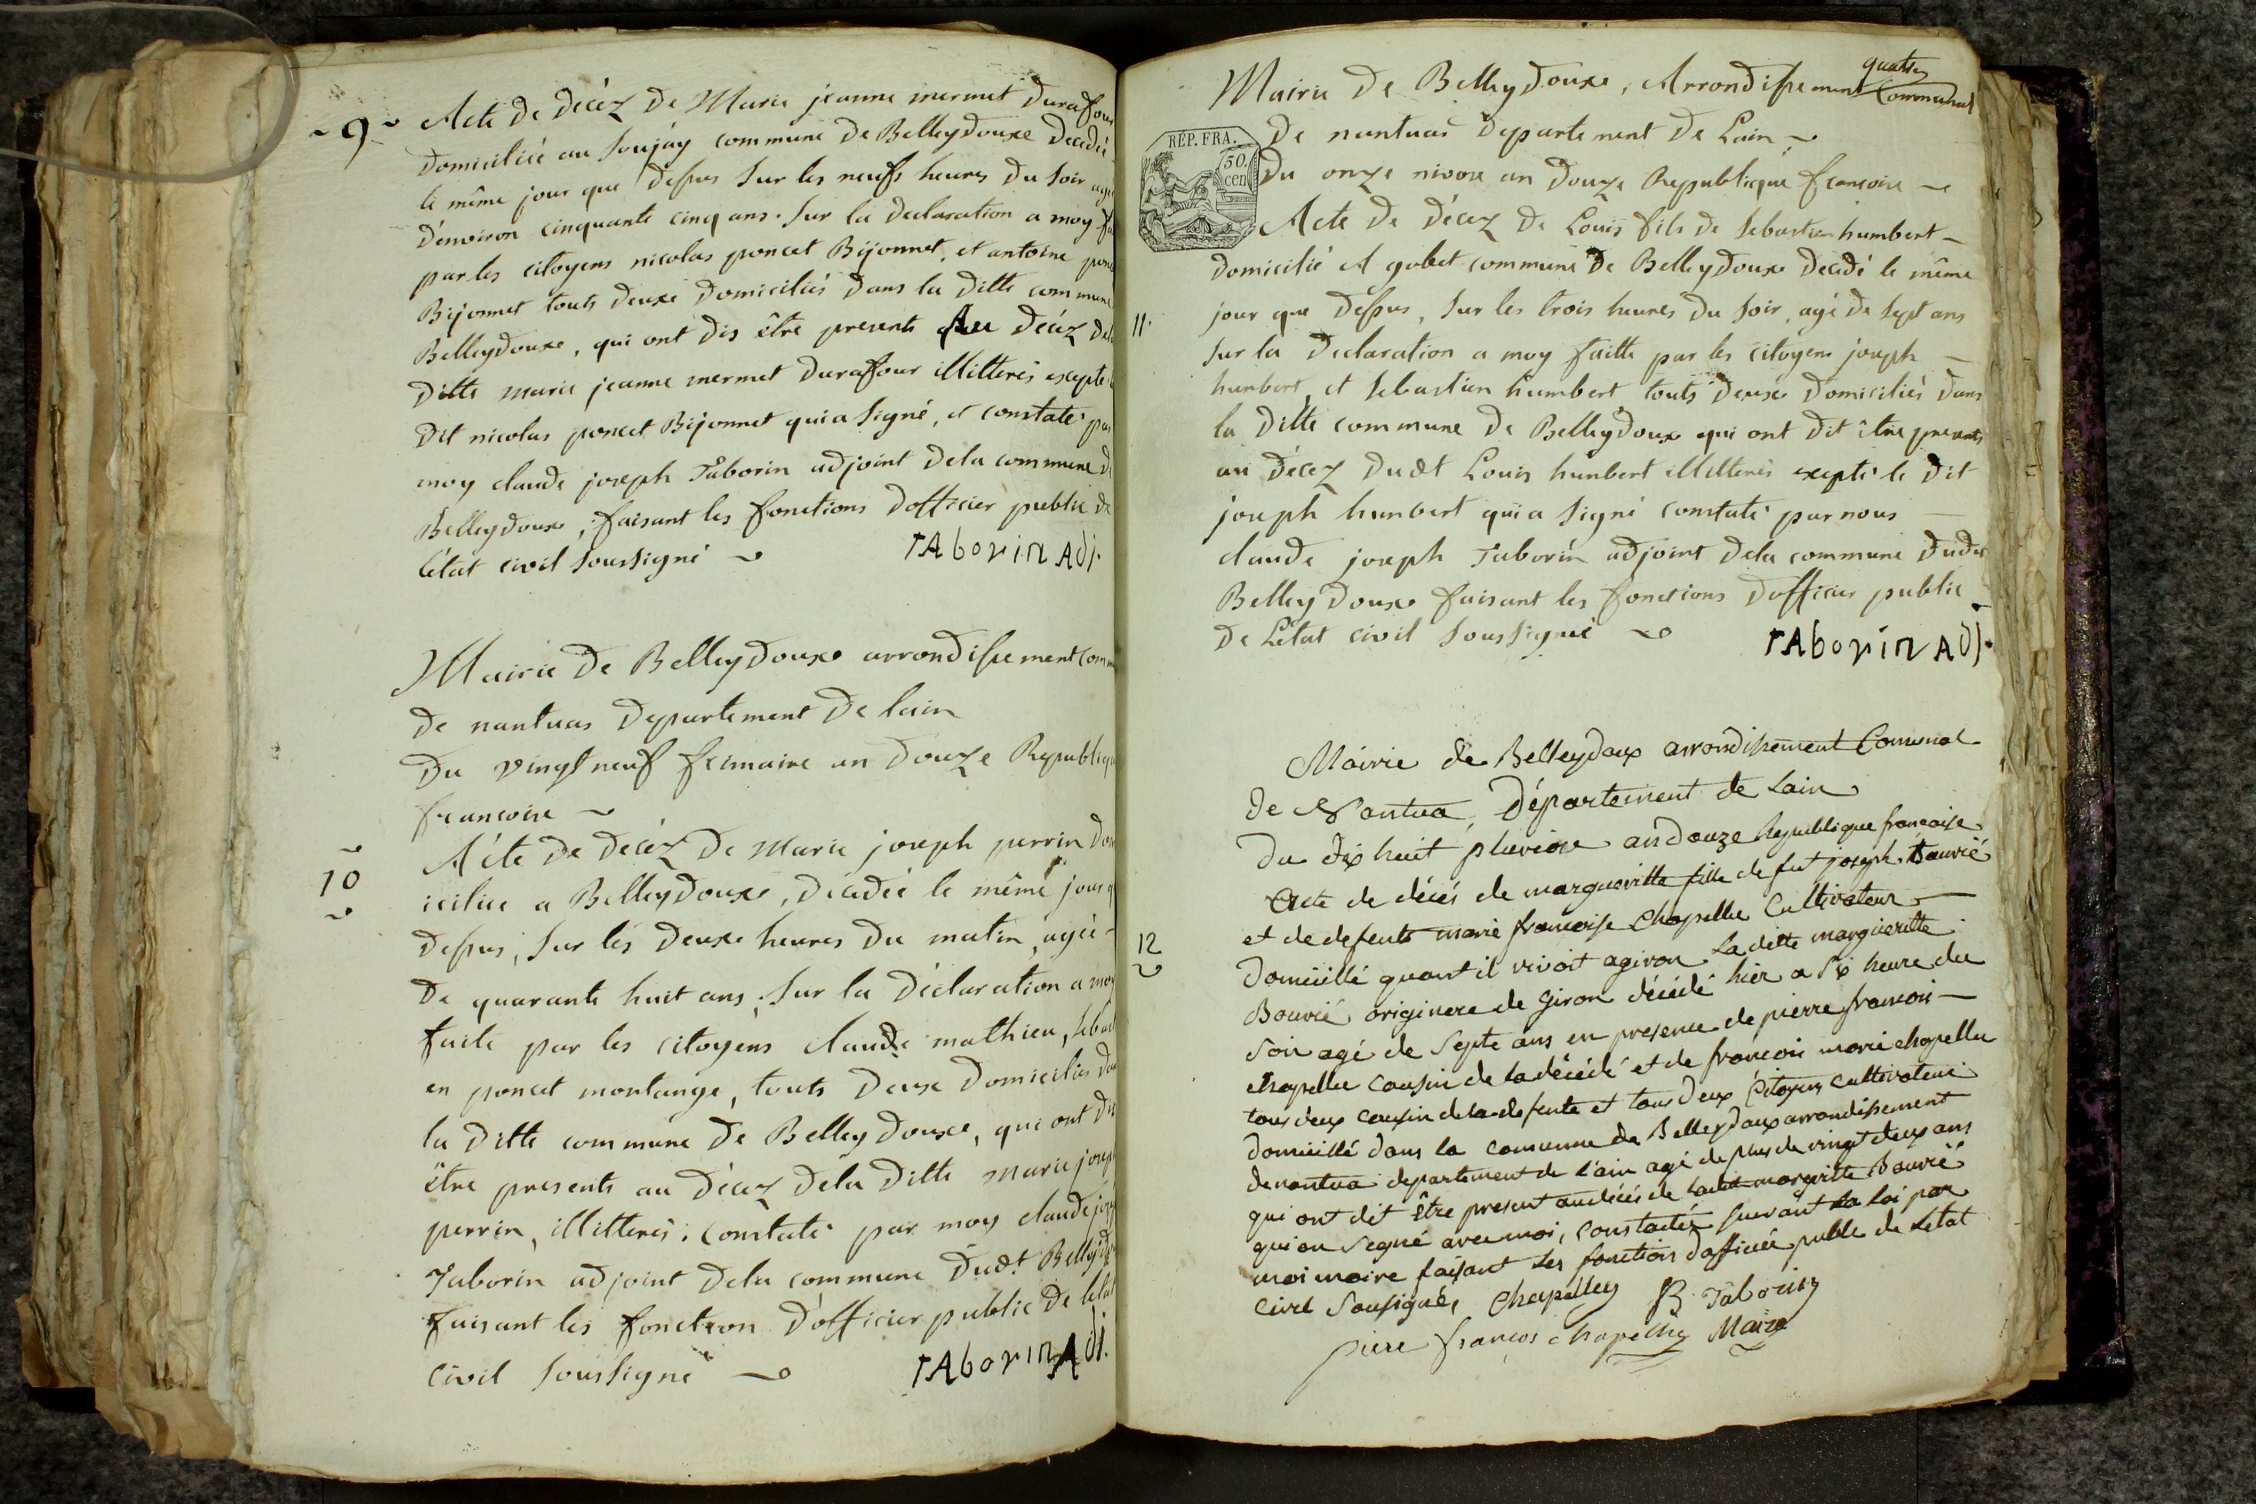 ~ 9 ~
Acte de decéz de Marie jeanne mermet durafour
domiciliée au Soujay commune de Belleydouxe decedée
le même jour que dessus sur les neufs heures du soir agée
d'environ cinquante cinq ans. Sur la declaration a moy
par les citoyens nicolas poncet Bijonnet, et antoine
Bijonnet touts deuxe domiciliés dans la ditte commune
Belleydouxe, qui ont dis être presents Au decéz
ditte marie jeanne mermet durafour illitterés excepte
dit nicolas poncet Bijonnet qui a signé, et constaté par
moy claude joseph Taborin adjoint dela commune de
Belleydouxe, faisant les fonctions dofficier public de
létat civil soussigné ~ TAborin Adj.
Mairie de Belleydouxe arrondissement
de nantuas departement de lain
du vingt neuf frimaire an douze Republique
francoise ~
10
Acte de decéz de Marie joseph perrin
iciliee a Belleydouxe, decedée le même jour
dessus, sur les deuxe heures du matin, agée
de quarante huit ans, sur la déclaration a moy
faite par les citoyens claude mathieu,
en poncet montange, touts deux domiciliés
la ditte commune de Belleydouxe, qui ont
être presents au décez dela ditte marie joseph
perrin, illitterés: constaté par moy claude
Taborin adjoint dela commune dudt
faisant les fonction dofficier public de létat
civil soussigné ~ TAborin Adj.
quatre
Mairie de Belleydouxe, Arrondissement Communal
de nantuas departement de Lain ~
RÉP. FRA.
50.
cen
Du onze nivose an douze Republique francoise ~
Acte de décez de Louis fils de Sebastien humbert
domicilié A gobet commune de Belleydouxe decedé le même
11.
jour que dessus, sur les trois heures du soir, agé de sept ans
sur la declaration a moy faitte par les citoyens joseph
humbert, et Sebastien humbert touts deuxe domiciliés dans
la ditte commune de Belleydouxe qui ont dit être presents
au décez dudt Louis humbert illitterés excepté le dit
joseph humbert qui a signé constaté par nous
claude joseph Taborin adjoint dela commune dudit
Belleydouxe faisant les fonctions dofficier public
de Létat civil soussigné ~ TAborin Adj.
Mairie de Belleydoux arrondissement Comunal
de Nantua, Département de Lain
du dix huit pluviose an douze République françoise
Acte de décés de margueritte fille de fut joseph Bouvié
et de defente marie francoise Chapellu Cultivateur
12
domicillé quant il vivoit agiron La ditte margueritte
Bouvié originere de Giron décédé hier a six heure du
soir agé de Septe ans en presence de pierre francois
chapellu cousin de la décédé et de francois marie chapellu
tous deux cousin de la defente et tous deux Citoyens cultivateur
domicillé dans la comunne de Belleydoux arrondissement
denantua departement de l'ain agé de plus de vingt deux ans
qui ont dit être present audécés de ladite margritte Bouvié
qui on segné avec moi, constatés suivant La loi par
moi maire faisant les fonction dofficiée public de Letat
civil sousigné, Chapelluy B Taborin
piere françois chapelluy Maire